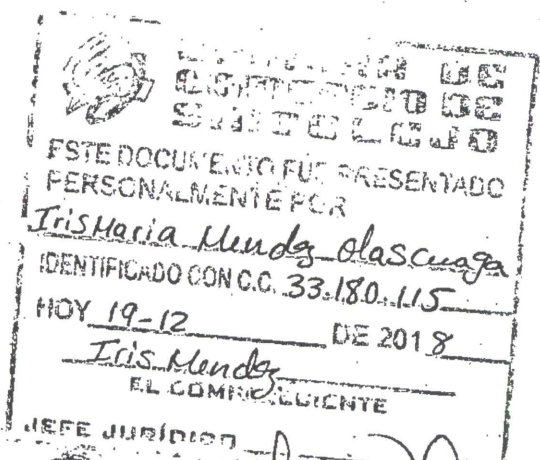 CAMARA DE
COMERCIO DE
SINCELEJO
ESTE DOCUMENTO FUE PRESENTADO
PERSONALMENTE POR
Iris Maria Mendez Olascuaga
IDENTIFICADO CON C.C. 33.180.115
HOY 19-12 DE 2018
Iris Mendez
EL COMPARECIENTE
JEFE JURÍDICO